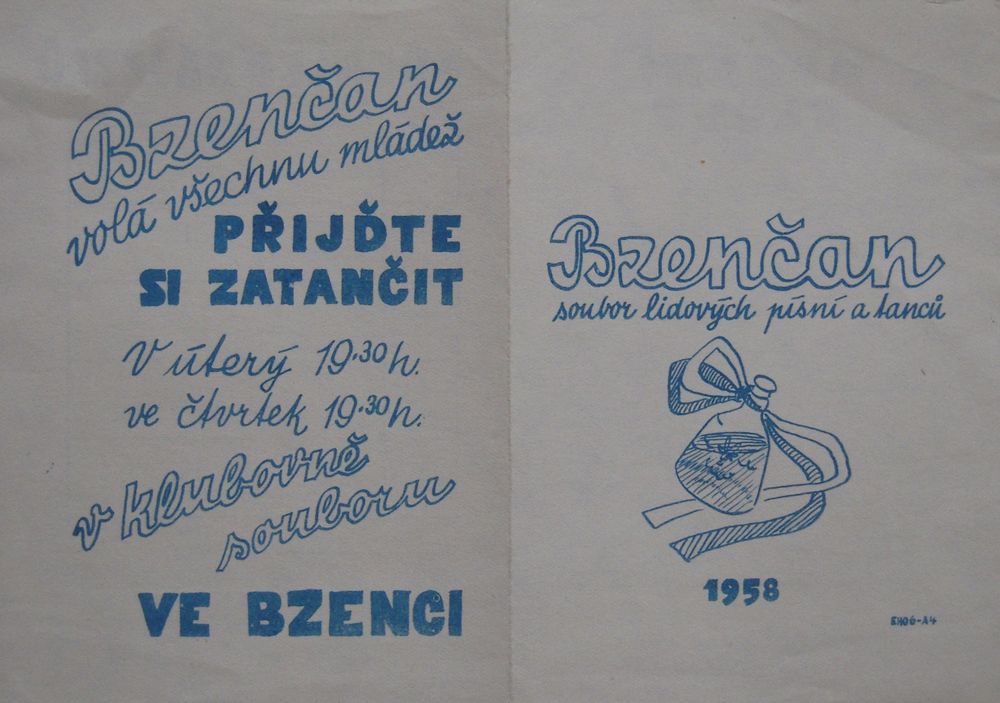 Bzenčan
volá všechnu mládež
PŘIJĎTE
SI ZATANČIT
V úterý 19.30 h.
ve čtvrtek 19.30 h.
v klubovně
souboru
VE BZENCI
Bzenčan
soubor lidových písní a tanců
1958